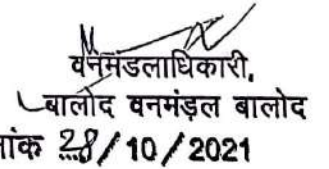 वनमंडलाधिकारी,
बालोद वनमंड़ल बालोद
नांक 28/10/2021